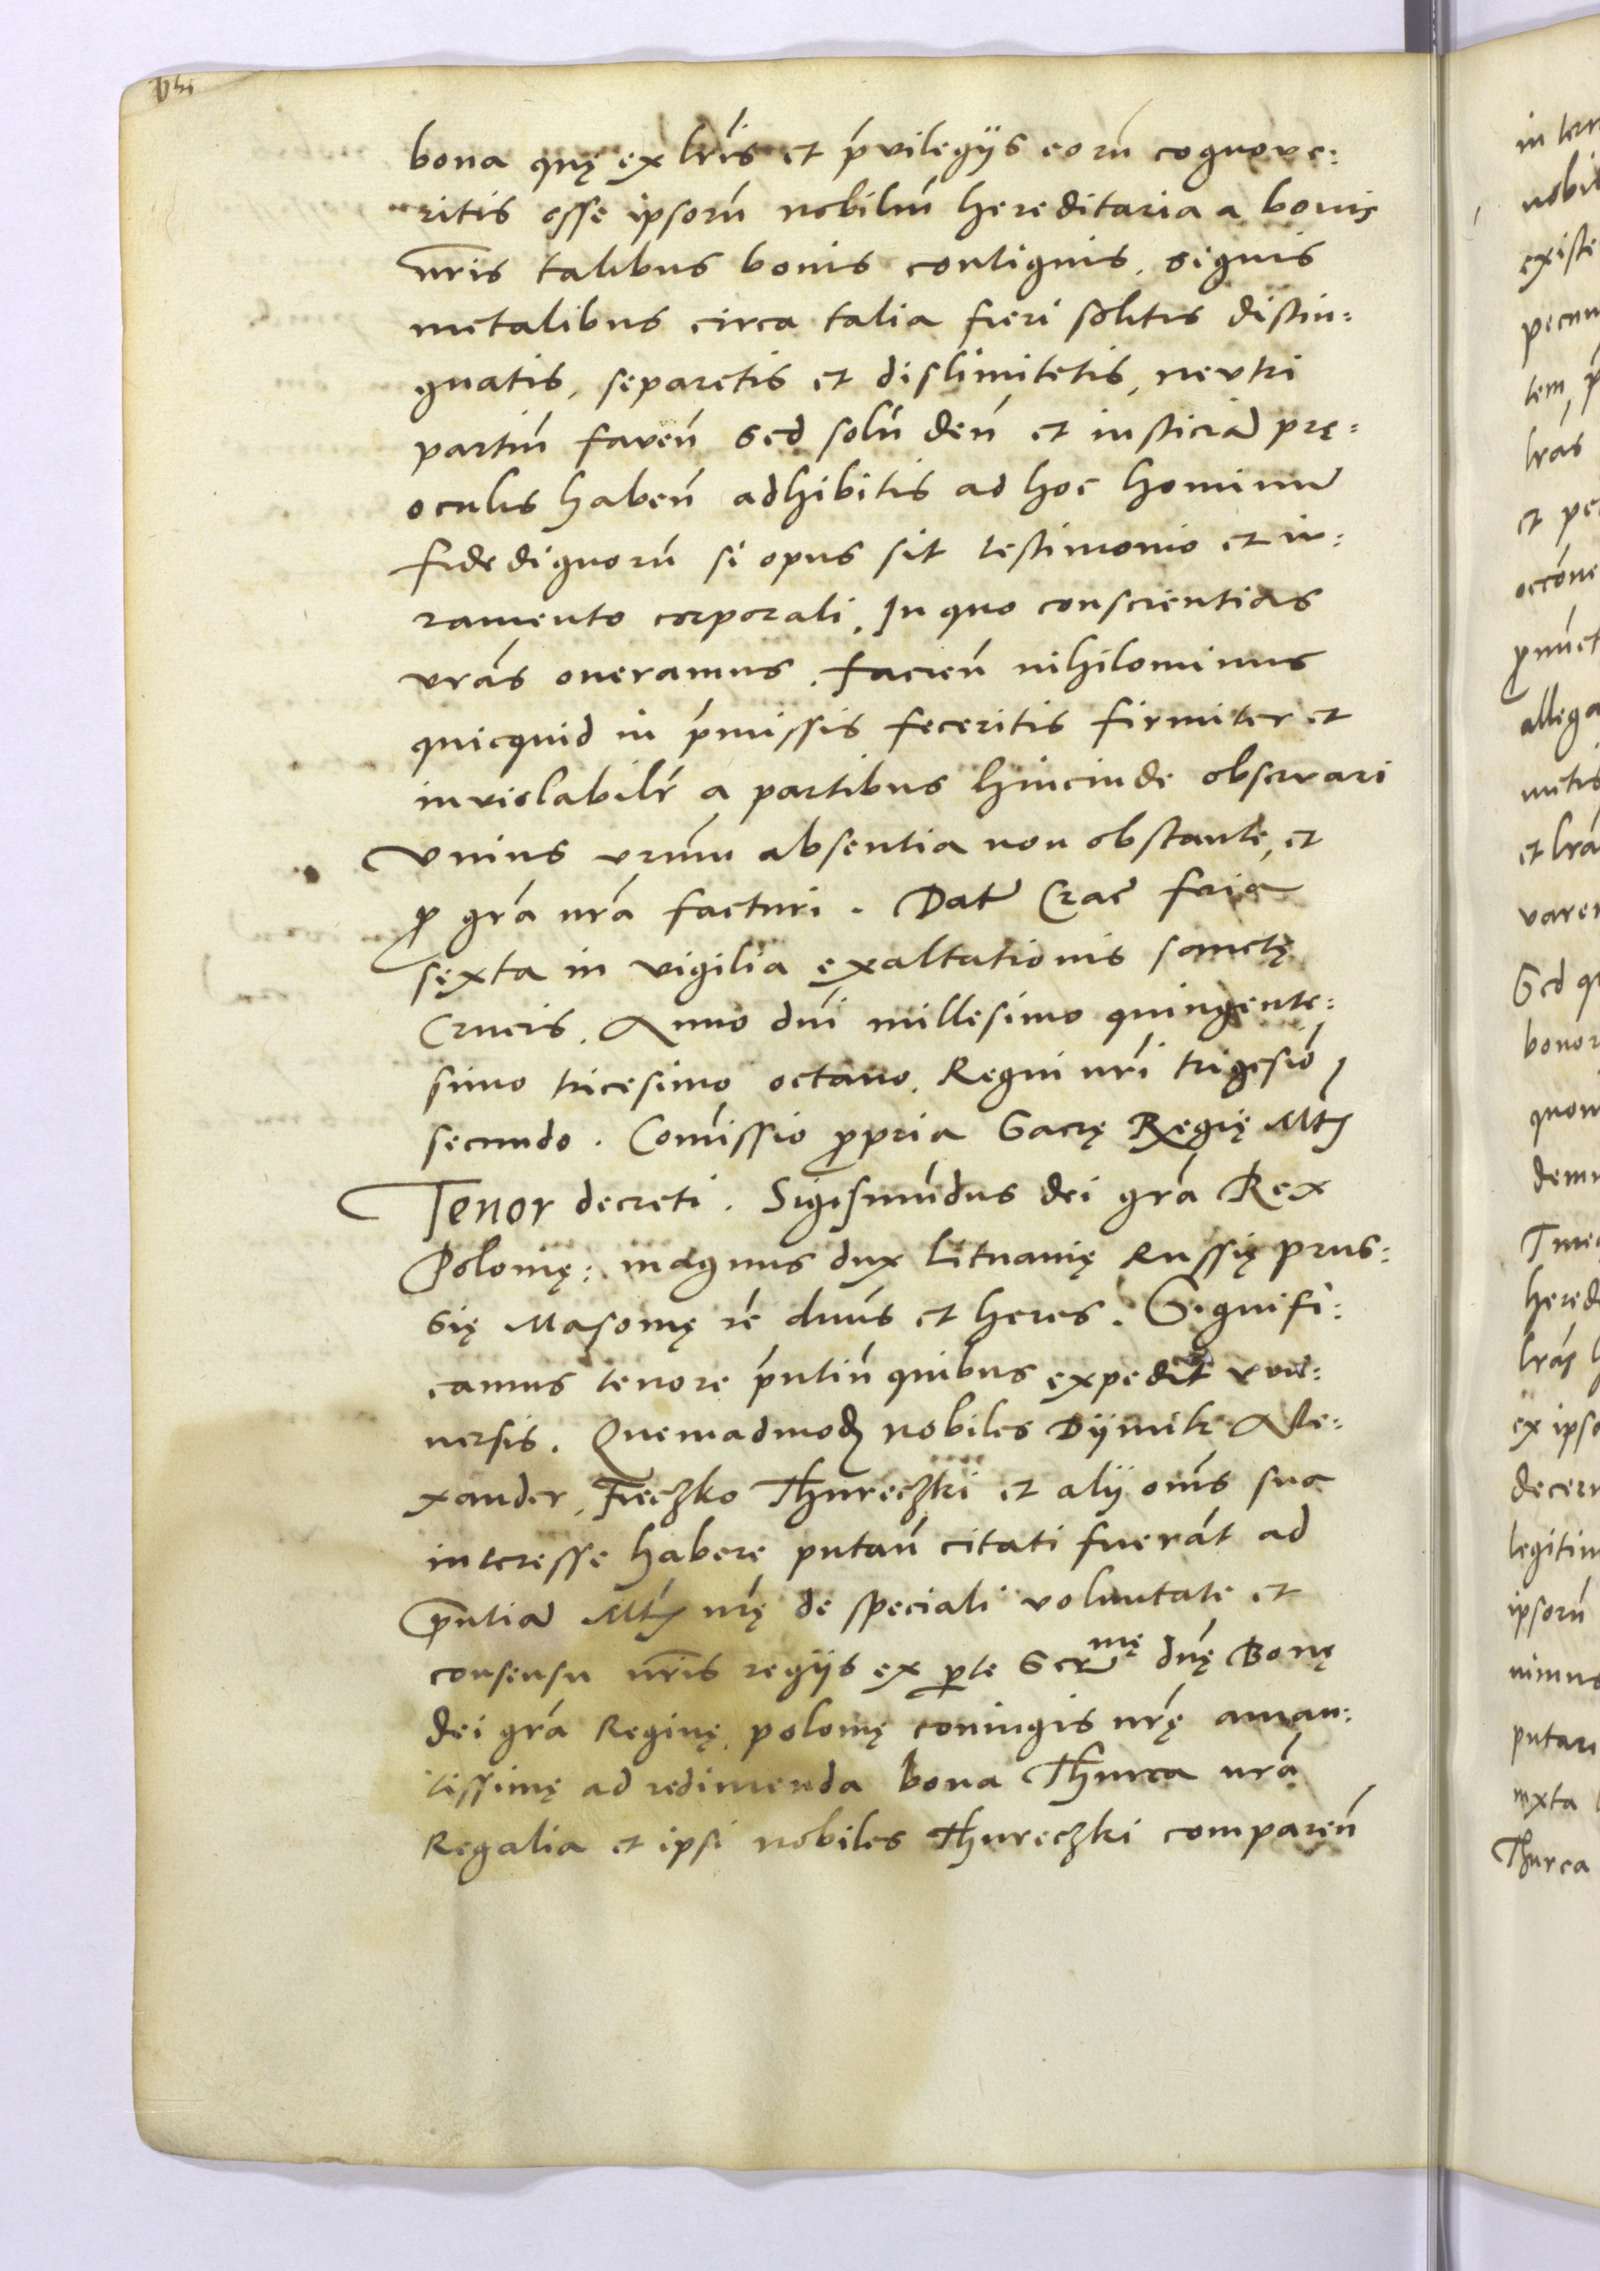 bona quę ex lris et pvilegijs eorū cognove:
ritis esse ipsorū nobiliū hereditaria a bonis
nris talibus bonis contiguis, signis
metalibus circa talia fieri solitis distin:
guatis, separetis et dislimitetis, neutri
partiū faveñ sed solū deū et iusticiā prę:
oculis habeñ adhibitis ad hoc hominū
fidedignorū si opus sit testimonio et iu:
ramento corporali, In quo conscientias
vras oneramus. facieñ nihilominus
quicquid in pmissis feceritis firmiter et
inviolabilr a partibus hincinde observari
Unius vrum absentia non obstante, et
ꝓ gra nra facturi. Dat Crac feria
sexta in vigilia exaltationis sanctę
Crucis, Anno dni millesimo quingente:
simo tricesimo octavo, Regni nri trigesio
secundo. Comissio ꝓpria Sacrę Regię Mtis
Tenor decreti. Sigismundus dei gra Rex
Polonię: magnus dux Lituanię Russię prus:
się Masovię re dnus et heres. Signifi:
camus tenore pntiū quibus expedit vni:
versis. Quemadmodū nobiles Dijmitr Ale:
xander, Fieczko Thureczki et alij oms sua
interesse habere putañ citati fuerāt ad
pntiā Mtis nrę de speciali voluntate et
consensu nris regijs ex ꝑte Sermę dnę Bonę
dei gra Reginę polonię coniugis nrę aman:
tissimę ad redimenda bona Thurca nra
Regalia et ipsi nobiles Thureczki compareñ
in terr
nobil
existe
pecun
tem, p
lras
et pe
occone
allega
et lra
varen
Sed qu
bonor
quon
dem
hered
lras
ex ipso
decern
legitim
ipsorū
nimus
putare
iuxta
Thurca